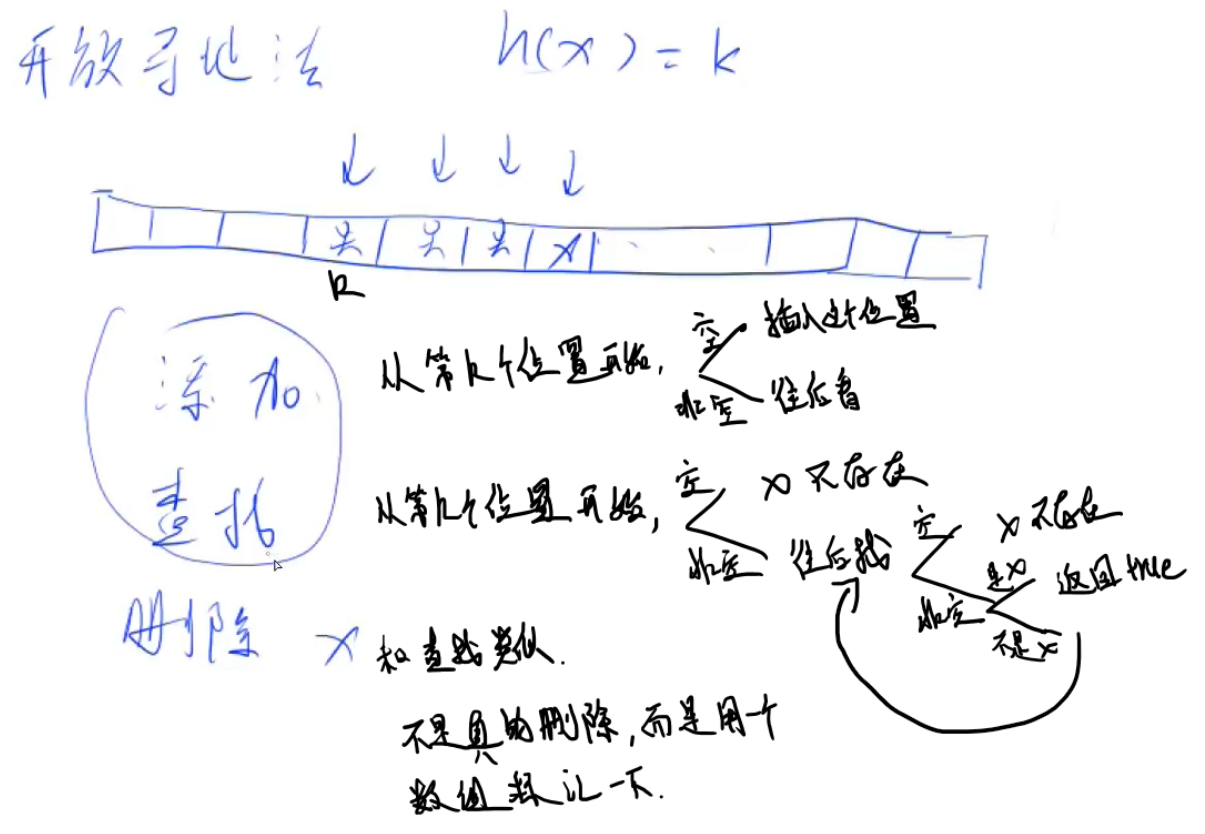 开放寻址法 h(x) = k
k
添加 从第k个位置开始, 空 插入这个位置
非空 往后看
查找 从第k个位置开始, 空 x不存在
非空 往后找 空 x不存在
非空 是x 返回true
不是x
删除 x 和查找类似.
不是真的删除,而是用个
数组标记一下.